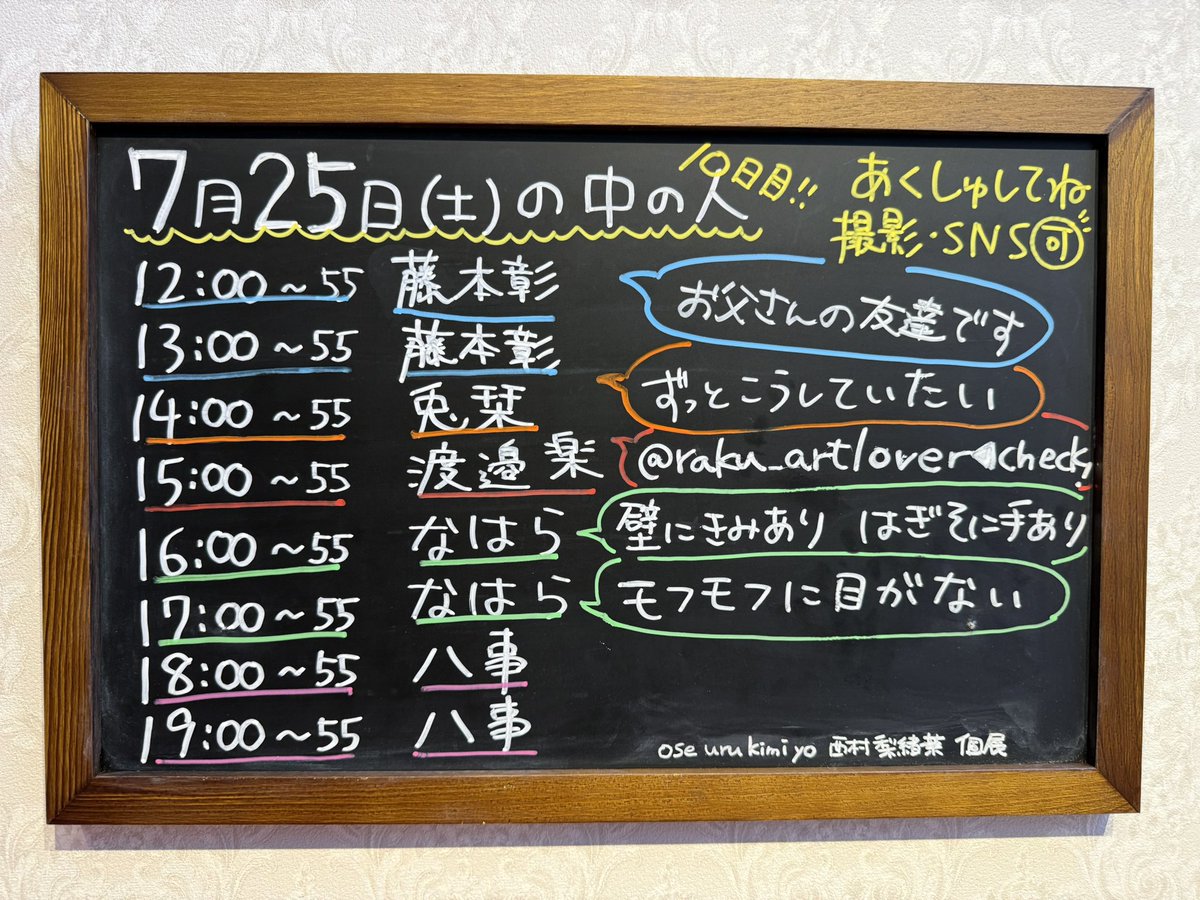 7月25日(土)の中の人 10日目!!
あくしゅしてね
撮影・SNS可
12:00~55 藤本彰 お父さんの友達です
13:00~55 藤本彰
14:00~55 兎栞 ずっとこうしていたい
15:00~55 渡邉楽 @raku_artlover◀check!
16:00~55 なはら 壁にきみあり はぎそに手あり
17:00~55 なはら モフモフに目がない
18:00~55 八事
19:00~55 八事
ose uru kimi yo 西村梨緒葉 個展